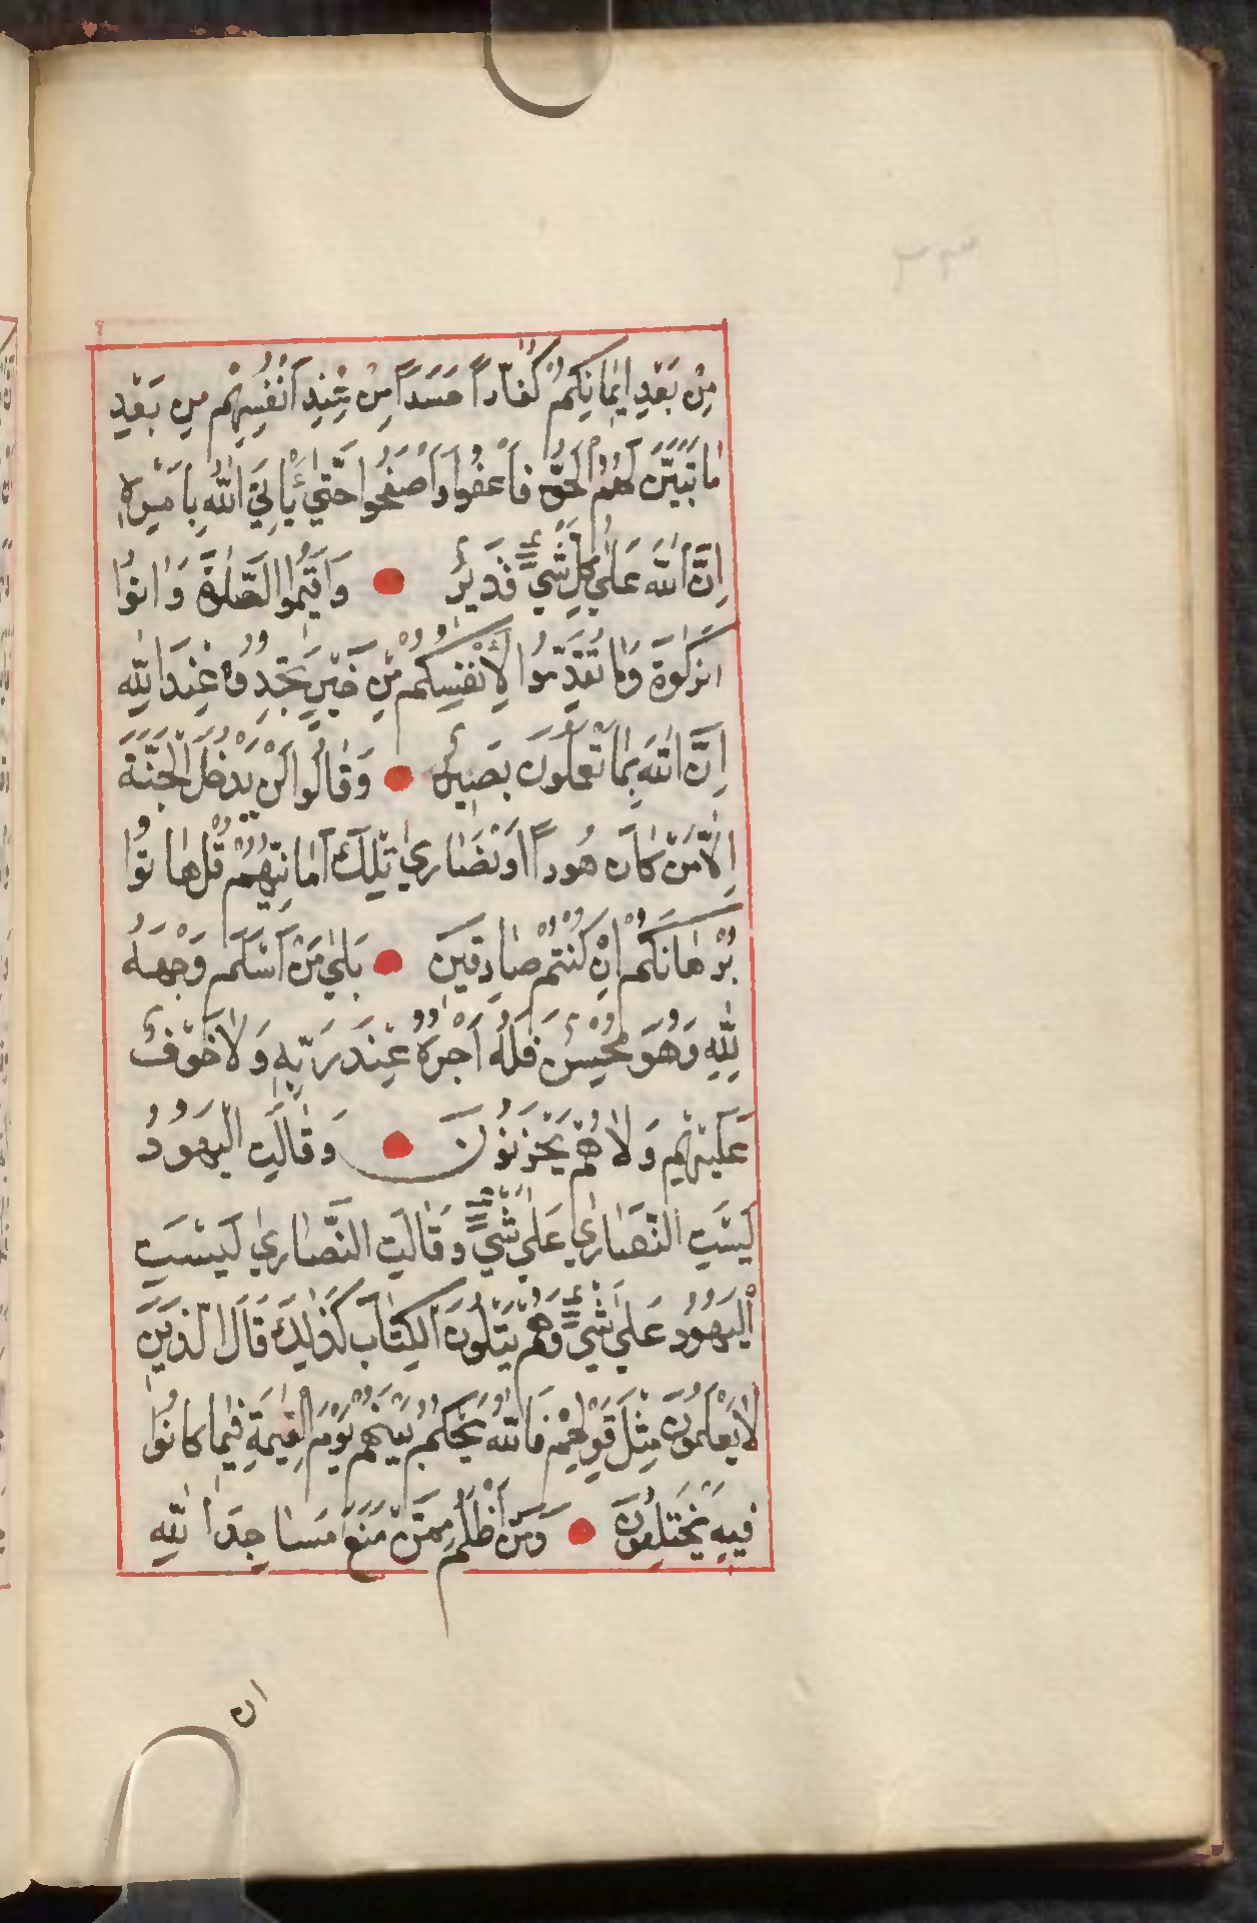 مِنْ بَعْدِ اِيمَانِكُمْ كُفَّاراً حَسَداً مِنْ عِنْدِ اَنْفُسِهِمْ مِن بَعْدِ
مَا تَبَيَّنَ لَهُمُ الْحَقُّ فَاعْفُوا وَاصْفَحُوا حَتّٰى يَأْتِيَ اللّٰهُ بِاَمْرِهٖ
اِنَّ اللّٰهَ عَلٰى كُلِّ شَيْءٍ قَدِيرٌ وَاَقِيمُوا الصَّلٰوةَ وَاٰتُوا
الزَّكٰوةَ وَمَا تُقَدِّمُوا لِاَنْفُسِكُمْ مِنْ خَيْرٍ تَجِدُوهُ عِنْدَ اللّٰهِ
اِنَّ اللّٰهَ بِمَا تَعْمَلُونَ بَصِيرٌ وَقَالُوا لَنْ يَدْخُلَ الْجَنَّةَ
اِلَّا مَنْ كَانَ هُوداً اَوْ نَصَارٰى تِلْكَ اَمَانِيُّهُمْ قُلْ هَاتُوا
بُرْهَانَكُمْ اِنْ كُنْتُمْ صَادِقِينَ بَلٰى مَنْ اَسْلَمَ وَجْهَهُ
لِلّٰهِ وَهُوَ مُحْسِنٌ فَلَهُ اَجْرُهُ عِنْدَ رَبِّهٖ وَلَا خَوْفٌ
عَلَيْهِمْ وَلَا هُمْ يَحْزَنُونَ وَقَالَتِ الْيَهُودُ
لَيْسَتِ النَّصَارٰى عَلٰى شَيْءٍ وَقَالَتِ النَّصَارٰى لَيْسَتِ
الْيَهُودُ عَلٰى شَيْءٍ وَهُمْ يَتْلُونَ الْكِتَابَ كَذٰلِكَ قَالَ الَّذِينَ
لَا يَعْلَمُونَ مِثْلَ قَوْلِهِمْ فَاللّٰهُ يَحْكُمُ بَيْنَهُمْ يَوْمَ الْقِيٰمَةِ فِيمَا كَانُوا
فِيهِ يَخْتَلِفُونَ وَمَنْ اَظْلَمُ مِمَّنْ مَنَعَ مَسَاجِدَ اللّٰهِ
ان